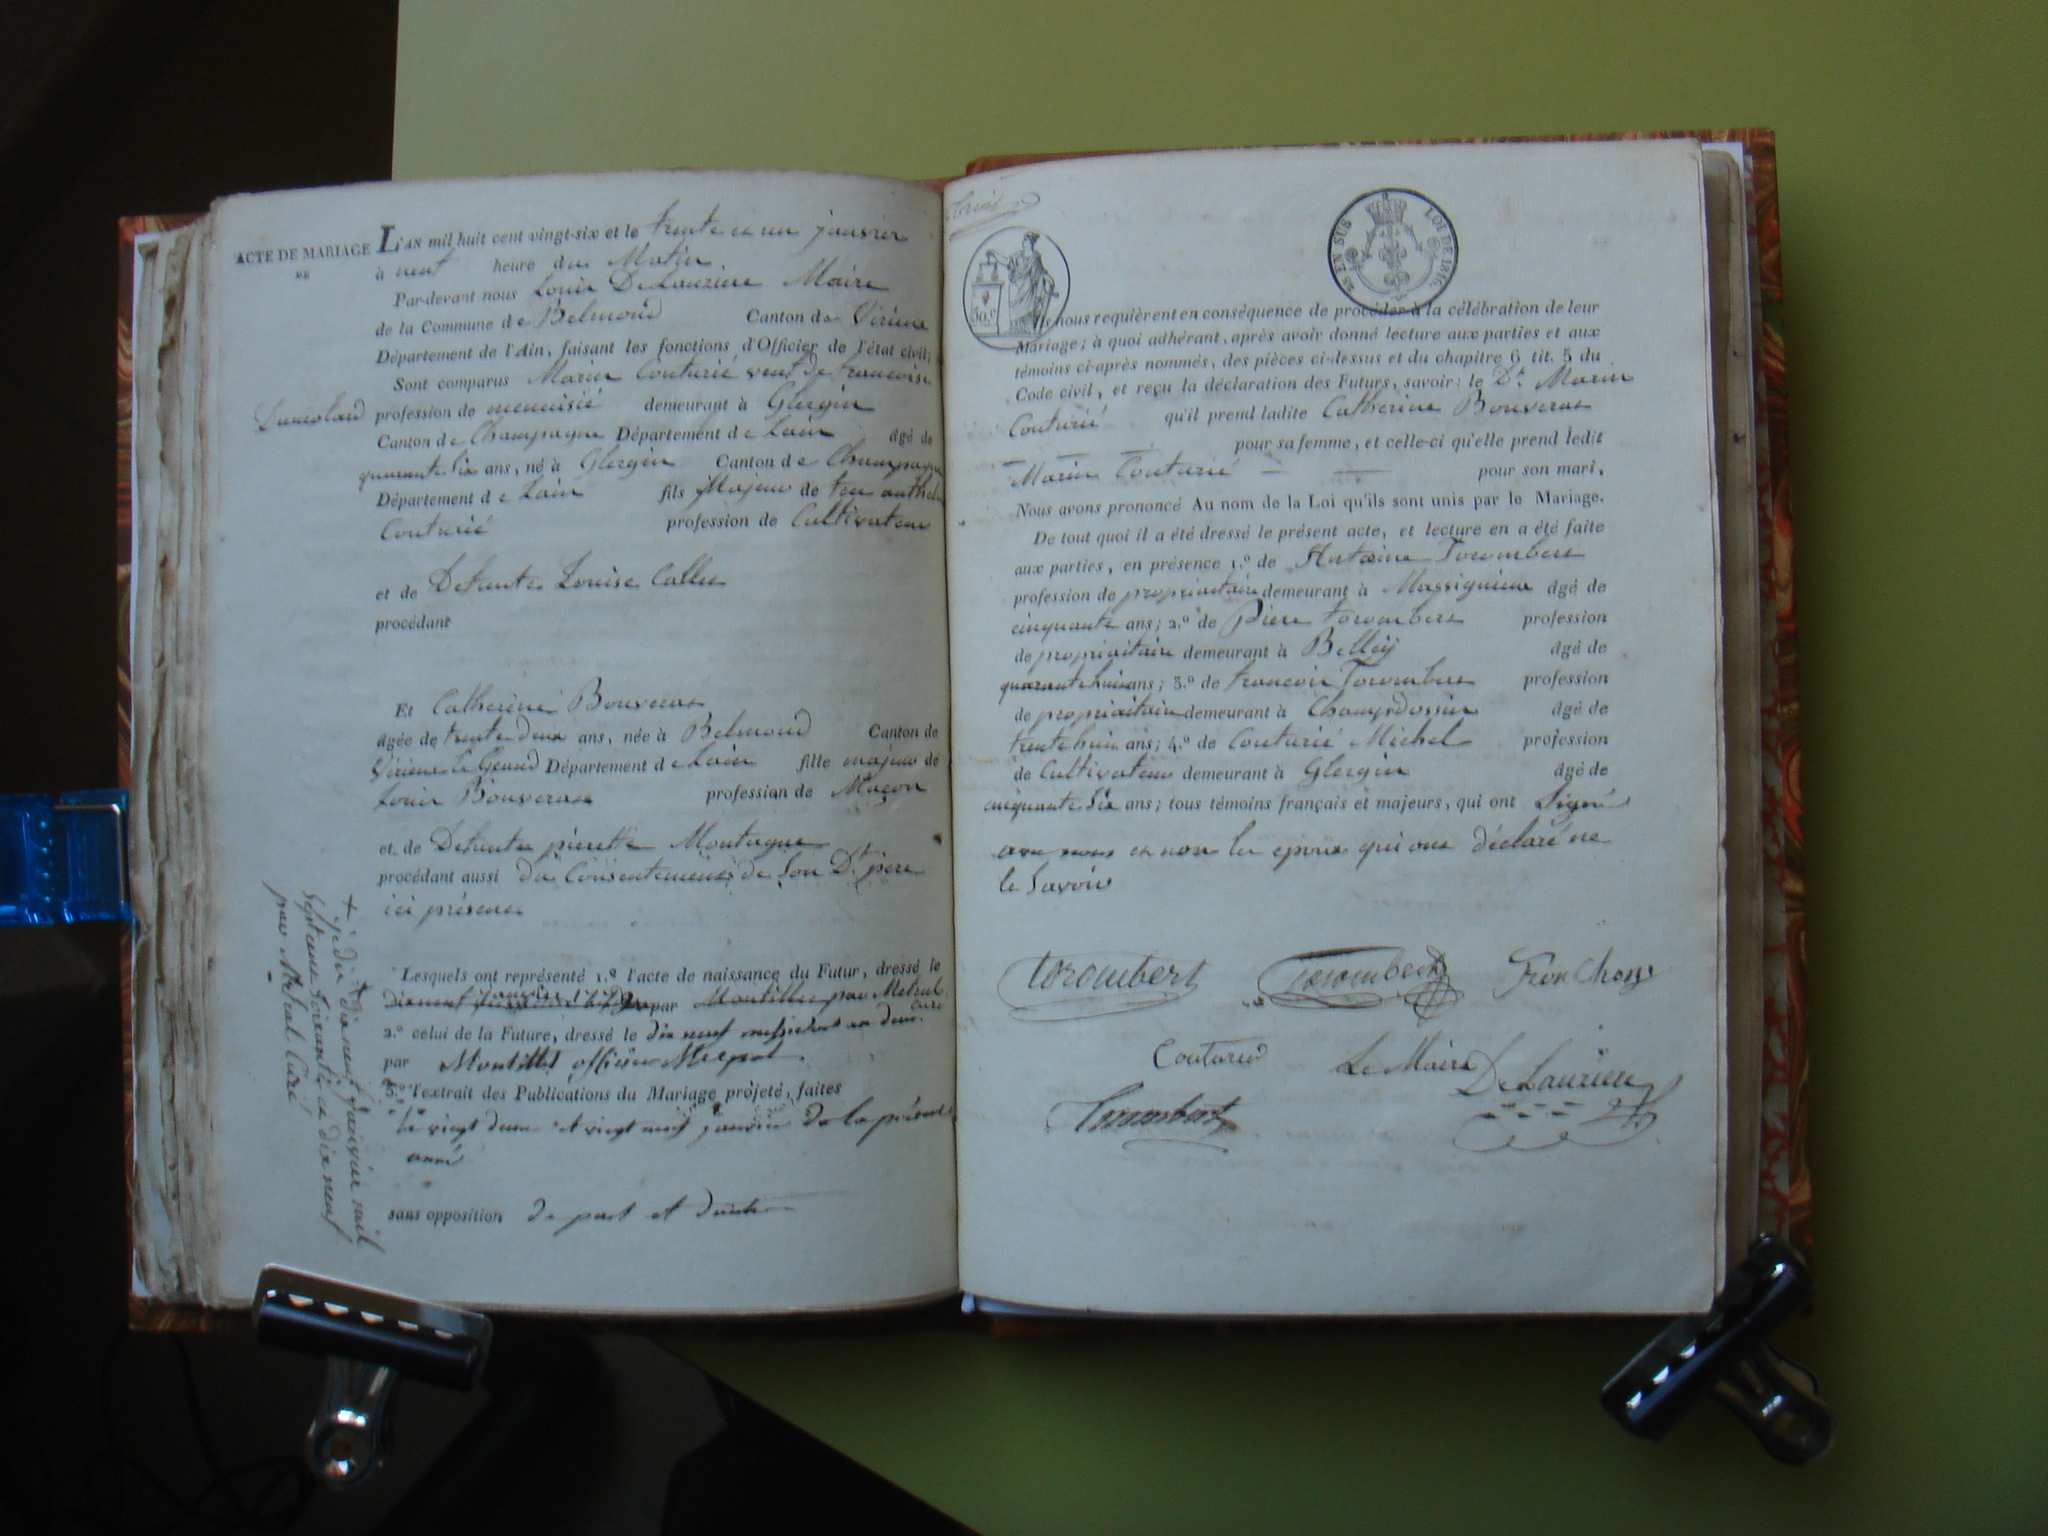 ACTE DE MARIAGE
DE
L'AN mil huit cent vingt-six et le trente et un janvier
à neuf heure du Matin
Par-devant nous Louis DeLauzière Maire
de la Commune de Belmond Canton de Virieux
Département de l'Ain, faisant les fonctions d'Officier de l'état civil;
Sont comparus Marin Couturié veuf de francoise
profession de menuisié demeurant à Glergin
Canton de Champagne Département de Lain âgé de
quarante six ans, né à Glergin Canton de Champagne
Département de Lain fils Majeur de feu anthelme
Couturié profession de Cultivateur
et de Defunte Louise Callet
procédant
Et Catherine Bouveras
âgée de trente deux ans, née à Belmond Canton de
Virieux Le Grand Département de Lain fille majeur de
Louis Bouveras profession de Maçon
et de Defunte pierette Montagne
procédant aussi du Consentement de Son Dt père
ici présent
Lesquels ont représenté 1.º l'acte de naissance du Futur, dressé le
par Montillet par Metral
curé
2.º celui de la Future, dressé le dix neuf messidor an deux
par Montillet officier
3.º l'extrait des Publications du Mariage projeté, faites
le vingt deux et vingt neuf janvier de la présente
anné
sans opposition de part et d'autre
+ je dis dix neuf janvier mil
sept cent soixante et dix neuf
par Metral Curé
30.c
EN SUS LOI DE 1816.
Ils nous requièrent en conséquence de procéder à la célébration de leur
Mariage; à quoi adhérant, après avoir donné lecture aux parties et aux
témoins ci-après nommés, des pièces ci-dessus et du chapitre 6 tit. 5 du
Code civil, et reçu la déclaration des Futurs, savoir: le Dt Marin
Couturié qu'il prend ladite Catherine Bouveras
pour sa femme, et celle-ci qu'elle prend ledit
Marin Couturié pour son mari.
Nous avons prononcé Au nom de la Loi qu'ils sont unis par le Mariage.
De tout quoi il a été dressé le présent acte, et lecture en a été faite
aux parties, en présence 1.º de Antoine Torombert
profession de propriaitaire demeurant à Massignieux âgé de
cinquante ans; 2.º de Piere torombert profession
de propriaitaire demeurant à Belley âgé de
quarante huit ans; 3.º de francois Torombert profession
de propriaitaire demeurant à Champdossin âgé de
trente huit ans; 4.º de Couturié Michel profession
de Cultivateur demeurant à Glergin âgé de
cinquante Six ans; tous témoins français et majeurs, qui ont Signé
et non les epoux qui ont déclaré ne
le Savoir
torombert Torombert
Couturié Le Maire DeLauzière
Torombert